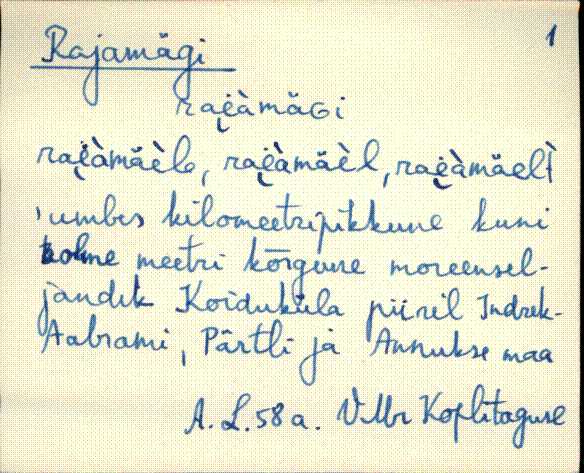 Rajamägi 1
rai̯àmäɢi
rai̯àmäèle, rai̯àmäèl, rai̯àmäelt̀
'umbes kilomeetripikkune kuni
kolme meetri kõrgune moreensel-
jandik Koiduküla piiril Indrek-
Aabrami, Pärtli ja Annukse maa
A. L. 58 a. VMr Koplitaguse